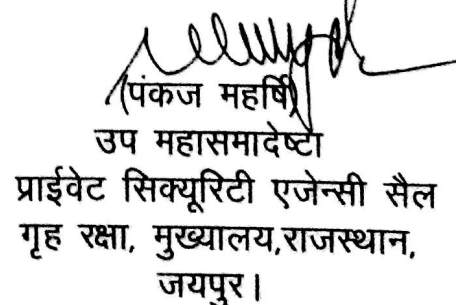 (पंकज महर्षि)
उप महासमादेष्टा
प्राईवेट सिक्यूरिटी एजेन्सी सैल
गृह रक्षा, मुख्यालय,राजस्थान,
जयपुर।